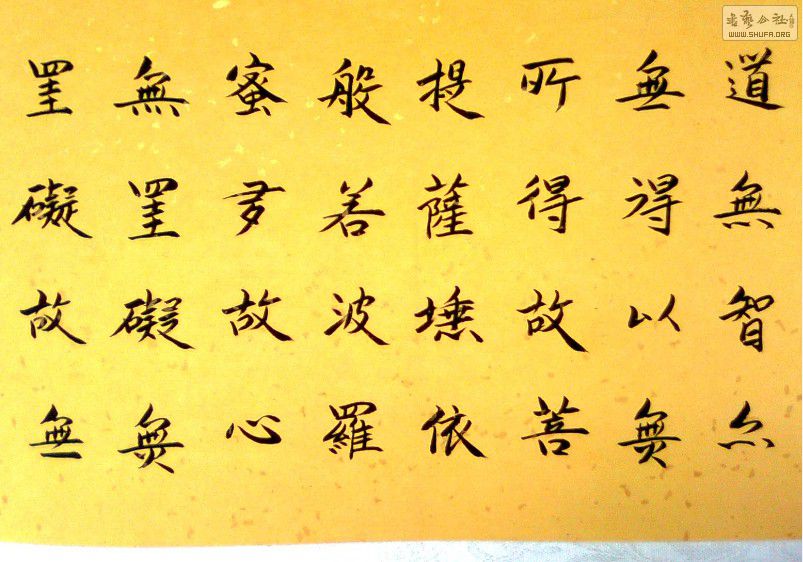 道無智亦
無得以無
所得故菩
提薩埵依
般若波羅
蜜多故心
無罣礙無
罣礙故無
書藝公社
WWW.SHUFA.ORG